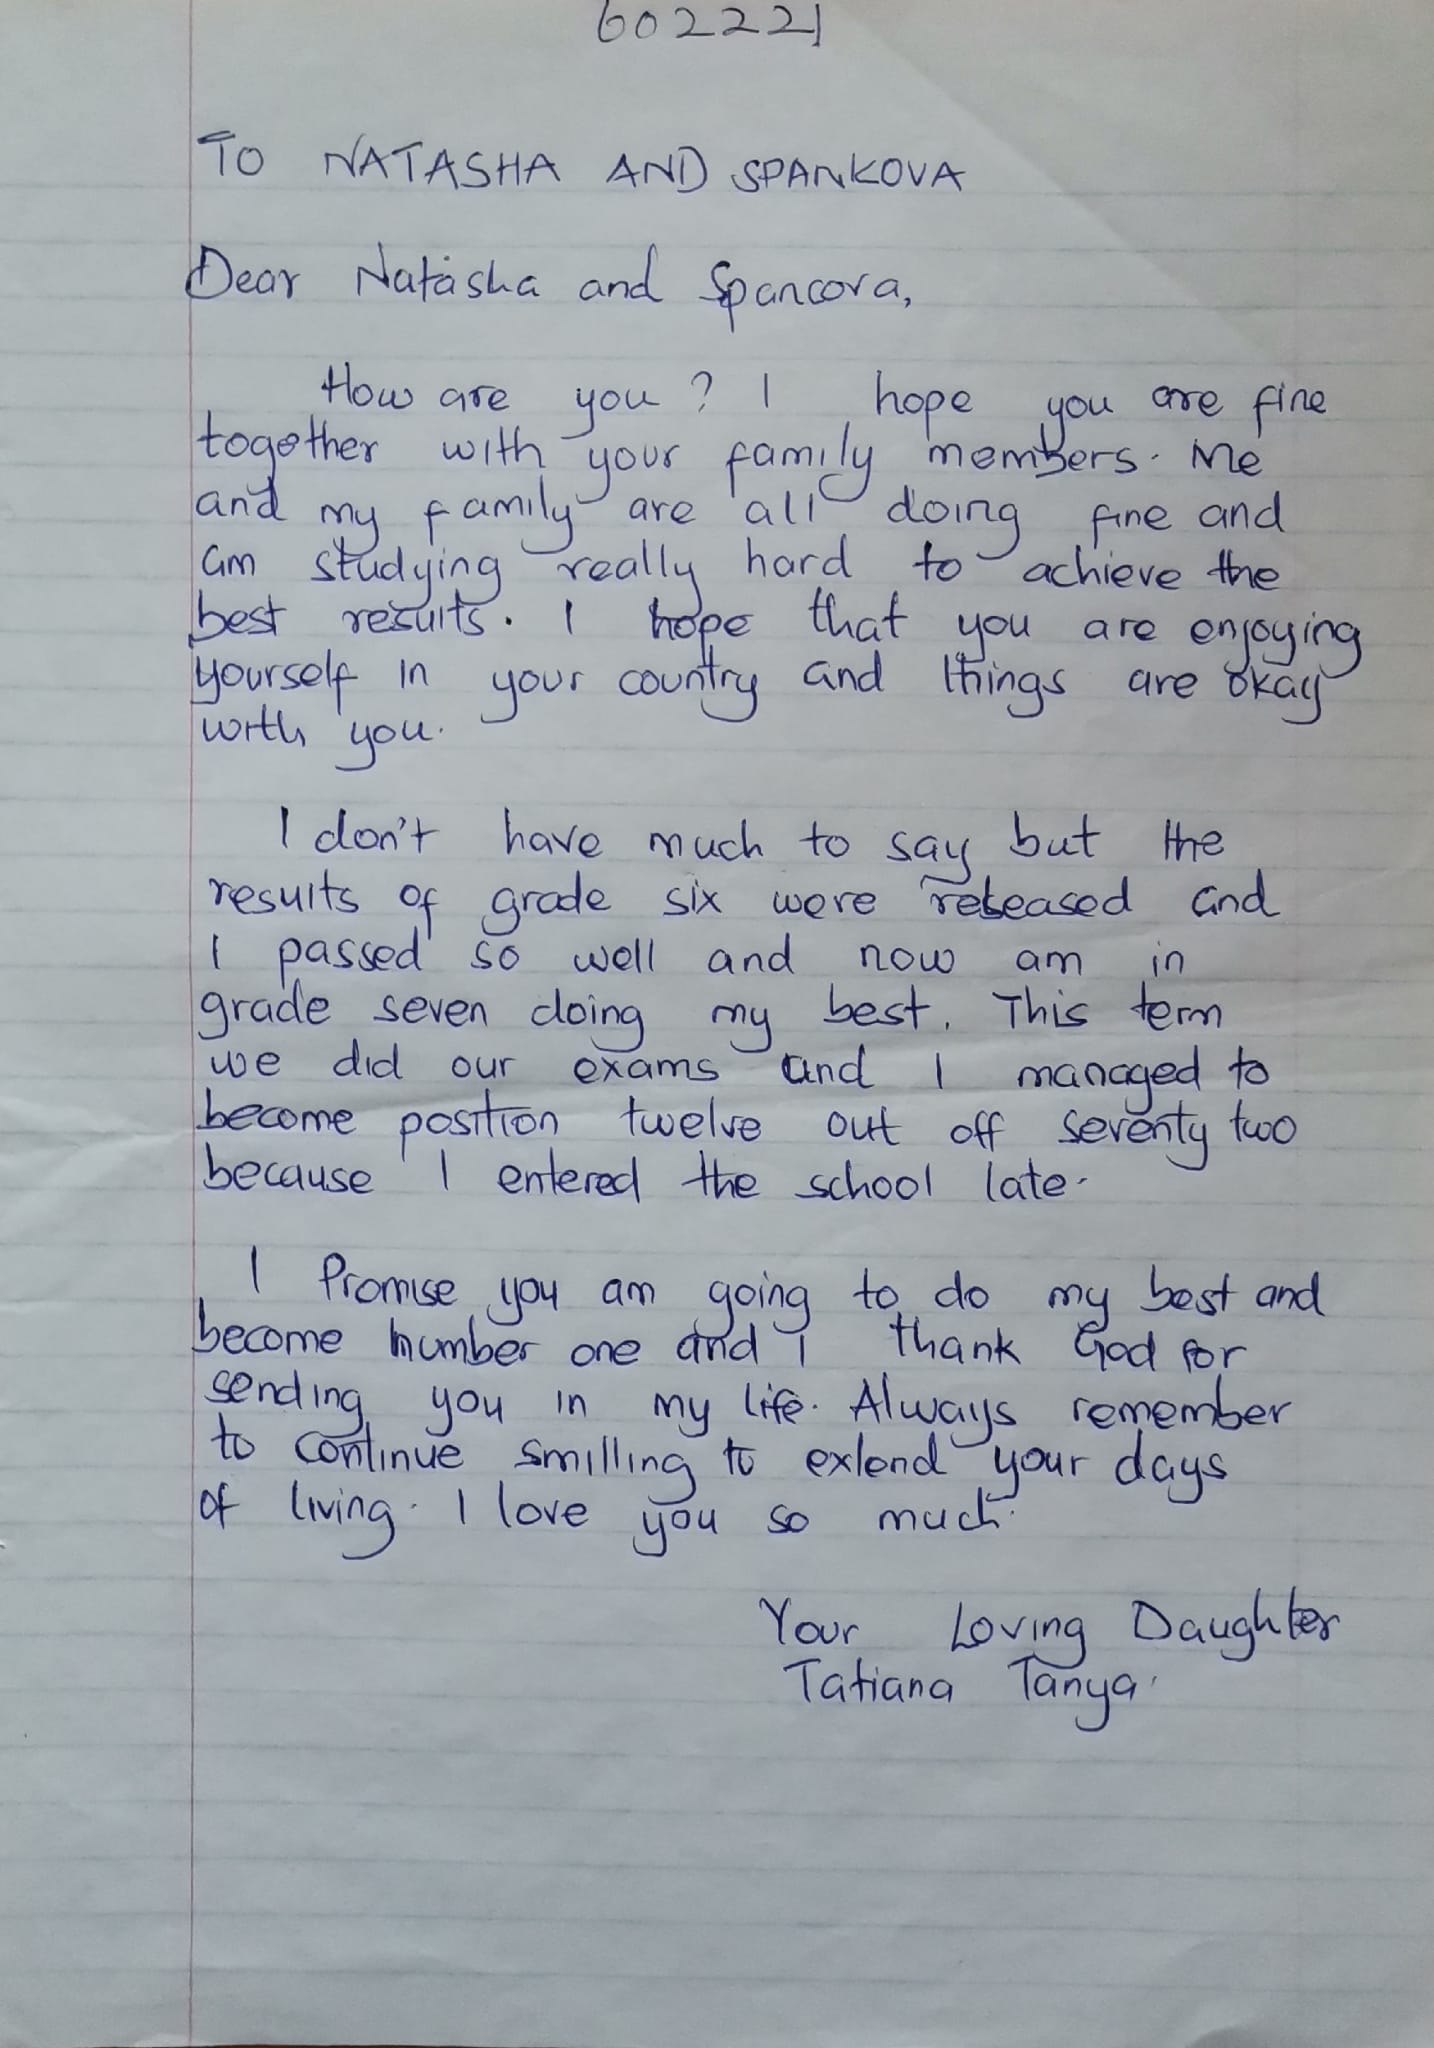 602221
TO NATASHA AND SPANKOVA
Dear Natasha and Spancova,
How are you? I hope you are fine
together with your family members. Me
and my family are all doing fine and
am studying really hard to achieve the
best results. I hope that you are enjoying
yourself in your country and things are okay
with you.
I don't have much to say but the
results of grade six were released and
I passed so well and now am in
grade seven doing my best. This term
we did our exams and I managed to
become position twelve out off seventy two
because I entered the school late.
I Promise you am going to do my best and
become number one and I thank God for
sending you in my life. Always remember
to continue smilling to extend your days
of living. I love you so much.
Your Loving Daughter
Tatiana Tanya.